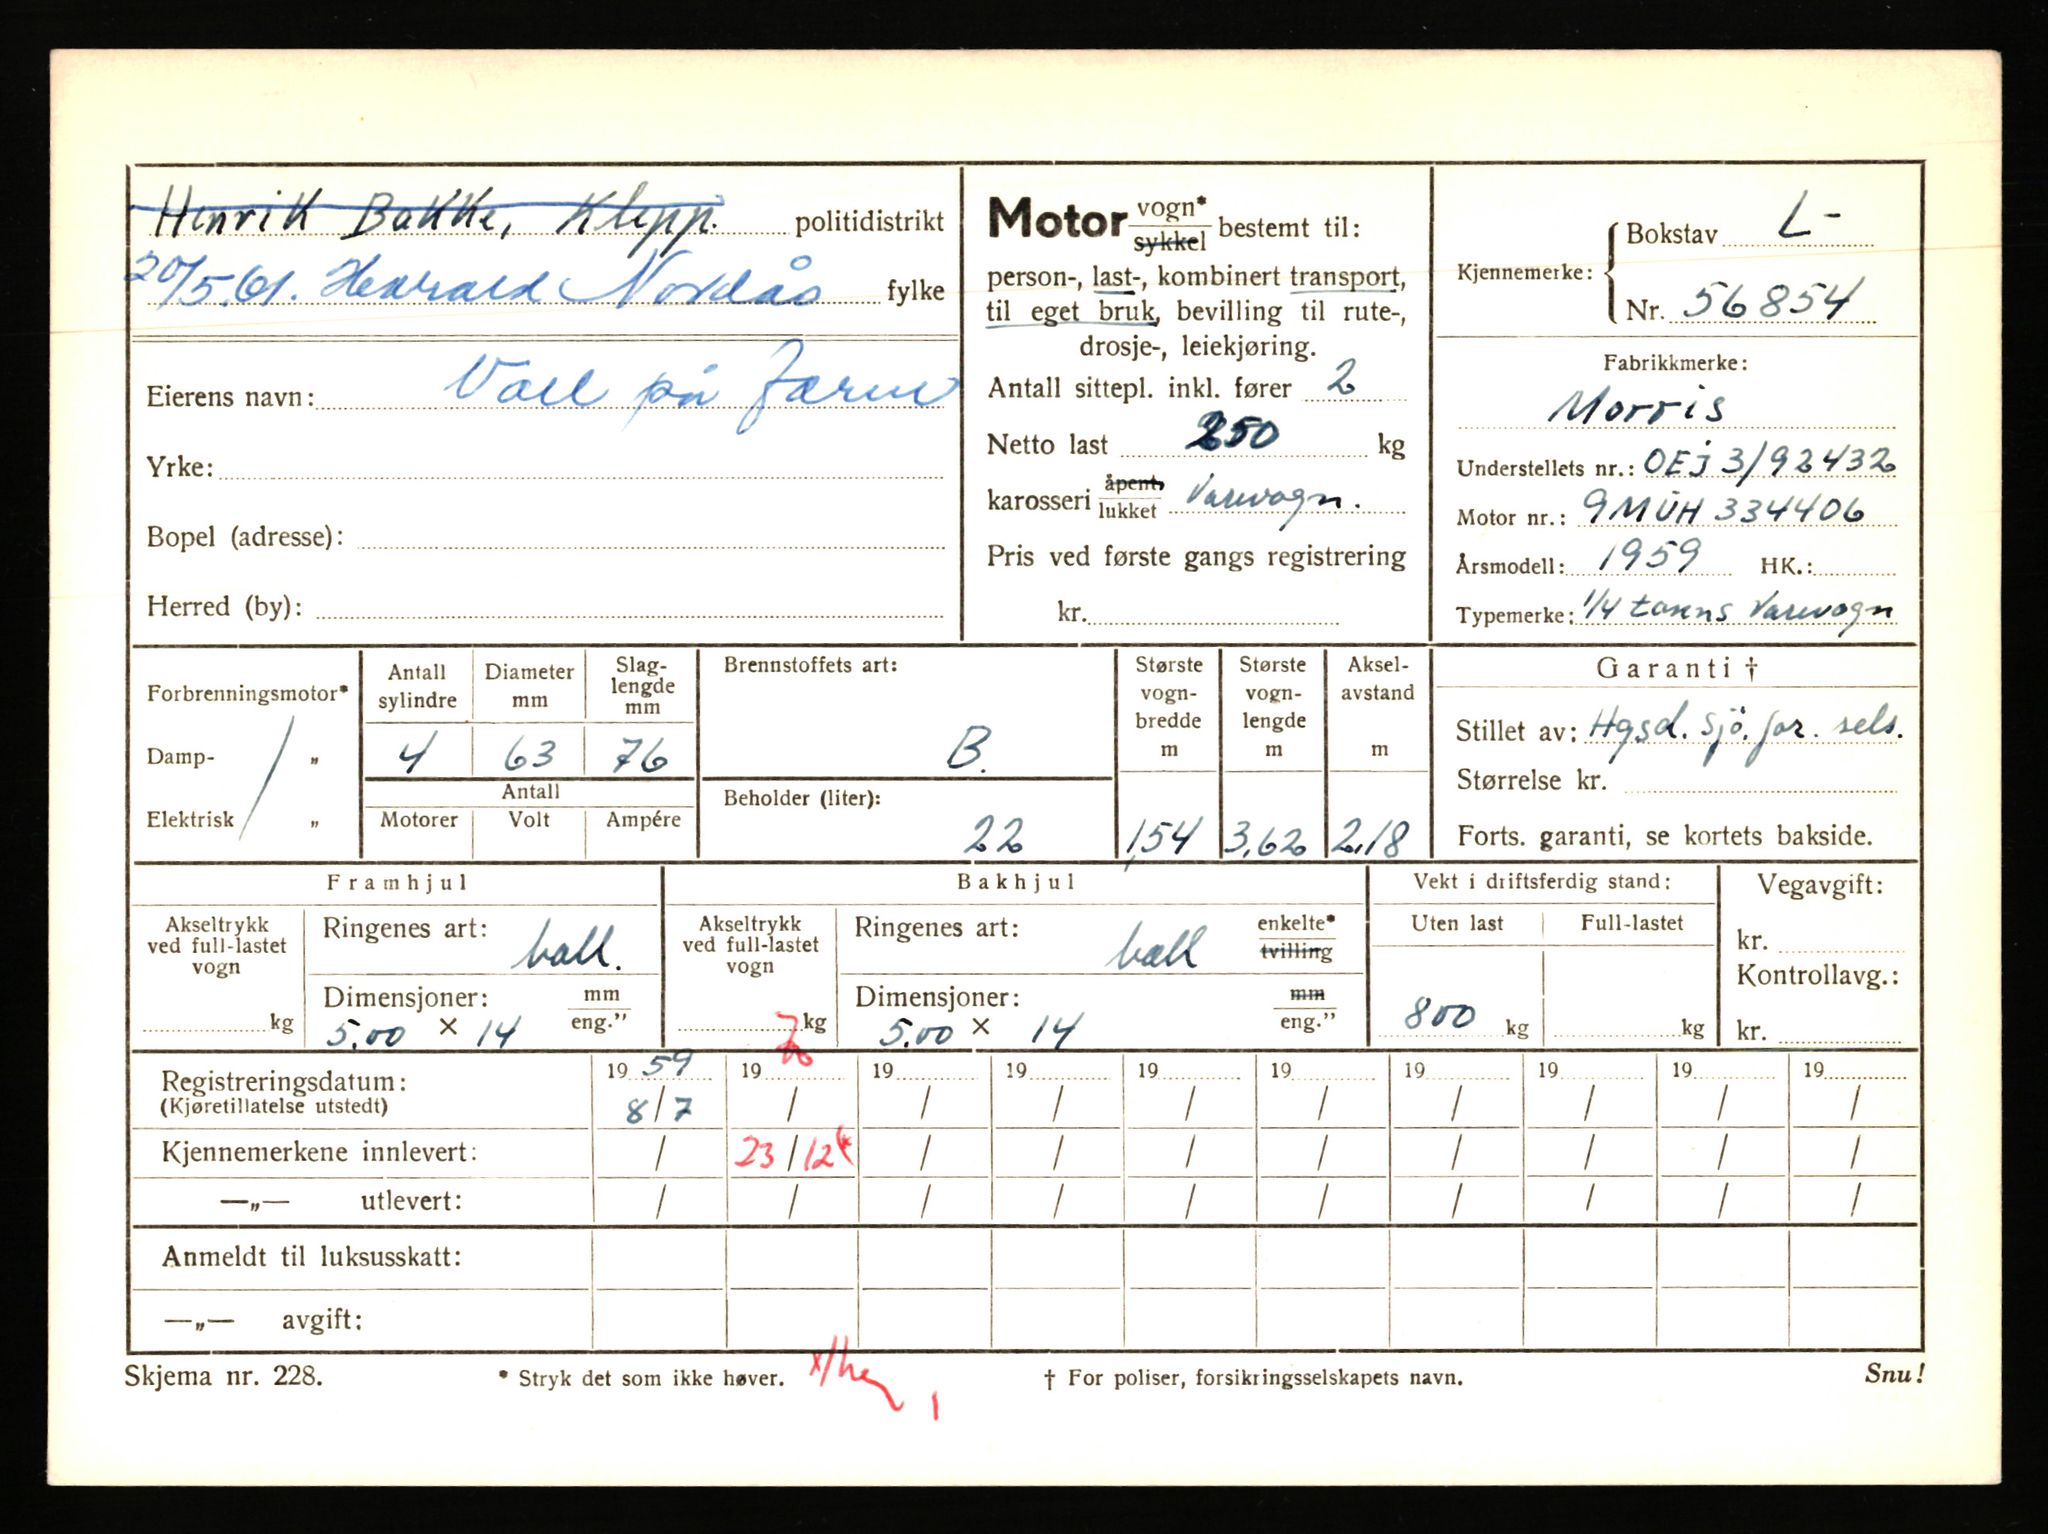 Henrik Bakke, Klepp. politidistrikt
20/5.61. Harald Nordås fylke
Eierens navn: Vall på Jæren
Yrke:
Bopel (adresse):
Herred (by):
Motor vogn* sykkel bestemt til:
person-, last-, kombinert transport,
til eget bruk, bevilling til rute-,
drosje-, leiekjøring.
Antall sittepl. inkl. fører 2
Netto last 250 kg
karosseri åpent, lukket Varevogn.
Pris ved første gangs registrering
kr.
Kjennemerke: Bokstav L-
Nr. 56854
Fabrikkmerke:
Morris
Understellets nr.: OEJ 3/92432
Motor nr.: 9MUH 334406
Årsmodell: 1959 HK.:
Typemerke: 1/4 tonns Varevogn
Forbrenningsmotor*
Damp- „
Elektrisk „
Antall sylindre Diameter mm Slag-lengde mm
4 63 76
Antall
Motorer Volt Ampére
Brennstoffets art:
B.
Beholder (liter):
22
Største vogn-bredde m
1,54
Største vogn-lengde m
3,62
Aksel-avstand m
2,18
Garanti †
Stillet av: Hgsd. Sjø. for. sels.
Størrelse kr.
Forts. garanti, se kortets bakside.
Framhjul
Akseltrykk ved full-lastet vogn
kg
Ringenes art: ball.
Dimensjoner: mm eng."
5.00 × 14
Bakhjul
Akseltrykk ved full-lastet vogn
kg
Ringenes art: ball enkelte* tvilling
Dimensjoner: mm eng."
5.00 × 14
Vekt i driftsferdig stand:
Uten last Full-lastet
800 kg kg
Vegavgift:
kr.
Kontrollavg.:
kr.
Registreringsdatum: 19 59 19 19 19 19 19 19 19 19 19
(Kjøretillatelse utstedt) 8/7 / / / / / / / / /
Kjennemerkene innlevert: / 23/12 / / / / / / / /
—„— utlevert: / / / / / / / / / /
Anmeldt til luksusskatt:
—„— avgift:
Skjema nr. 228. * Stryk det som ikke høver. † For poliser, forsikringsselskapets navn. Snu!